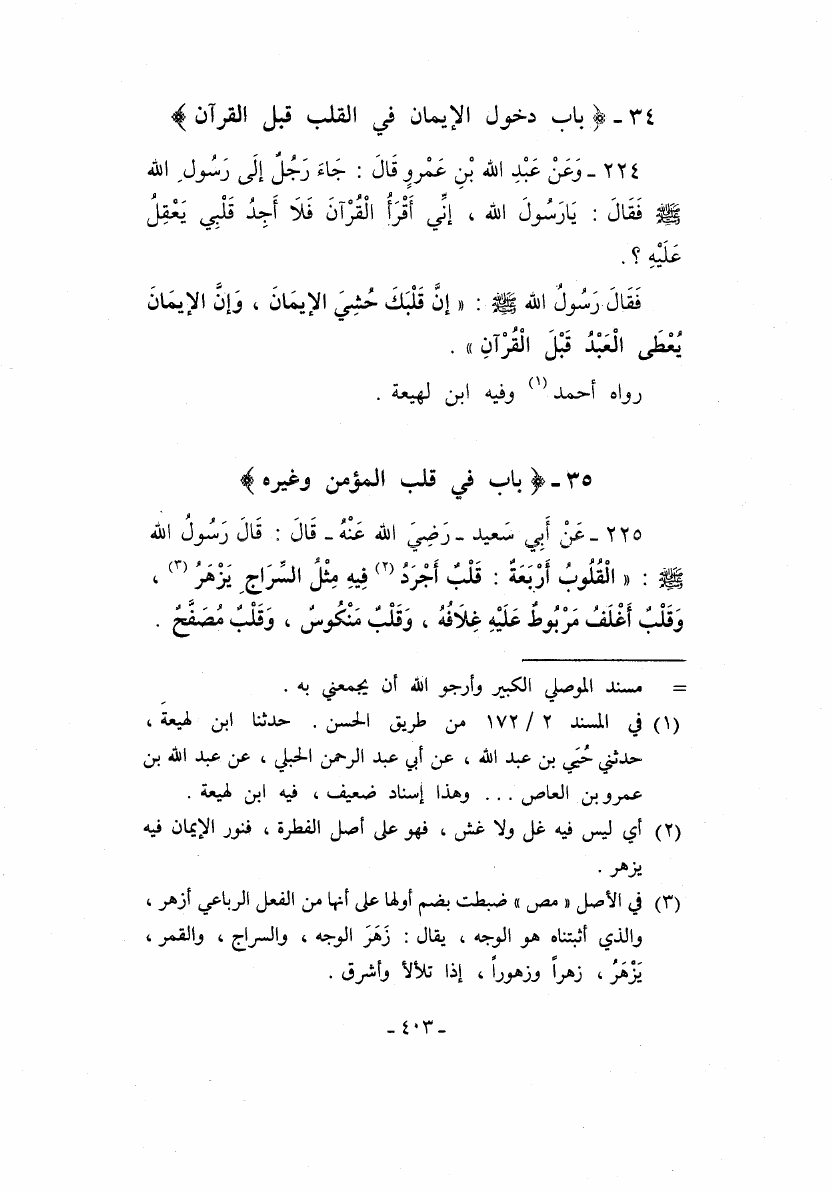 ٣٤ - ﴿ باب دخول الإيمان في القلب قبل القرآن ﴾
٢٢٤ - وَعَنْ عَبْدِ الله بْنِ عَمْرٍو قَالَ : جَاءَ رَجُلٌ إِلَى رَسُولِ الله
ﷺ فَقَالَ : يَارَسُولَ الله ، إنِّي أَقْرَأُ الْقُرْآنَ فَلَا أَجِدُ قَلْبِي يَعْقِلُ
عَلَيْهِ ؟ .
فَقَالَ رَسُولُ الله ﷺ : « إنَّ قَلْبَكَ حُشِيَ الإيمَانَ ، وَإنَّ الإيمَانَ
يُعْطَى الْعَبْدُ قَبْلَ الْقُرْآنِ » .
رواه أحمد (١) وفيه ابن لهيعة .
٣٥ - ﴿ باب في قلب المؤمن وغيره ﴾
٢٢٥ - عَنْ أَبِي سَعيد - رَضِيَ الله عَنْهُ - قَالَ : قَالَ رَسُولُ الله
ﷺ : « الْقُلُوبُ أَرْبَعَةٌ : قَلْبٌ أَجْرَدُ (٢) فِيهِ مِثْلُ السِّرَاجِ يَزْهَرُ (٣) ،
وَقَلْبٌ أَغْلَفُ مَرْبُوطٌ عَلَيْهِ غِلَافُهُ ، وَقَلْبٌ مَنْكُوسٌ ، وَقَلْبٌ مُصَفَّحٌ .
= مسند الموصلي الكبير وأرجو الله أن يجمعني به .
(١) في المسند ٢ / ١٧٢ من طريق الحسن . حدثنا ابن لهيعة ،
حدثني حُيَي بن عبد الله ، عن أبي عبد الرحمن الحبلي ، عن عبد الله بن
عمرو بن العاص ... وهذا إسناد ضعيف ، فيه ابن لهيعة .
(٢) أي ليس فيه غل ولا غش ، فهو على أصل الفطرة ، فنور الإيمان فيه
يزهر .
(٣) في الأصل « مص » ضبطت بضم أولها على أنها من الفعل الرباعي أزهر ،
والذي أثبتناه هو الوجه ، يقال : زَهَرَ الوجه ، والسراج ، والقمر ،
يَزْهَرُ ، زهراً وزهوراً ، إذا تلألأ وأشرق .
- ٤٠٣ -